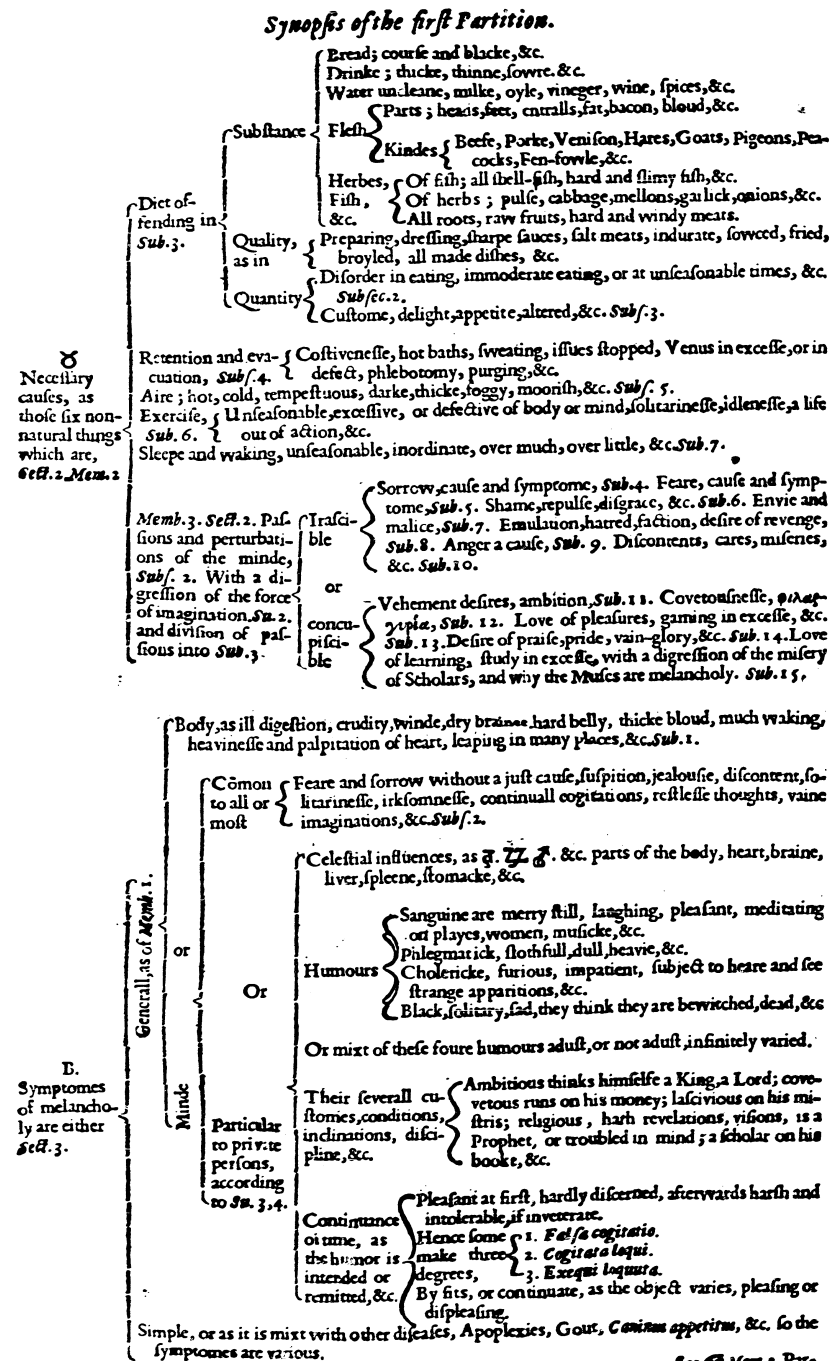 Synopſis of the firſt Partition.
Bread; courſe and blacke, &c.
Drinke; thicke, thinne, ſowre. &c.
Water uncleane, milke, oyle, vineger, wine, ſpices, &c.
Parts; heads, feet, entralls, fat, bacon, bloud, &c.
Subſtance
Fleſh
Kindes
Beefe, Porke, Veniſon, Hares, Goats, Pigeons, Pea-
cocks, Fen-fowle, &c.
Herbes,
Fiſh,
&c.
Of fiſh; all ſhell-fiſh, hard and ſlimy fiſh, &c.
Of herbs; pulſe, cabbage, mellons, garlick, onions, &c.
All roots, raw fruits, hard and windy meats.
Diet of-
fending in
Sub. 3.
Quality,
as in
Preparing, dreſſing, ſharpe ſauces, ſalt meats, indurate, ſowced, fried,
broyled, all made diſhes, &c.
Quantity
Diſorder in eating, immoderate eating, or at unſeaſonable times, &c.
Subſec. 2.
Cuſtome, delight, appetite, altered, &c. Subſ. 3.
♉
Neceſſary
cauſes, as
thoſe ſix non-
natural things
which are,
Sect. 2. Mem. 2
Retention and eva-
cuation, Subſ. 4.
Coſtiveneſſe, hot baths, ſweating, iſſues ſtopped, Venus in exceſſe, or in
defect, phlebotomy, purging, &c.
Aire; hot, cold, tempeſtuous, darke, thicke, foggy, mooriſh, &c. Subſ. 5.
Exerciſe,
Sub. 6.
Unſeaſonable, exceſſive, or defective of body or mind, ſolitarineſſe, idleneſſe, a life
out of action, &c.
Sleepe and waking, unſeaſonable, inordinate, over much, over little, &c. Sub. 7.
Memb. 3. Sect. 2. Paſ-
ſions and perturbati-
ons of the minde,
Subſ. 2. With a di-
greſſion of the force
of imagination. Su. 2.
and diviſion of paſ-
ſions into Sub. 3.
Iraſci-
ble
Sorrow, cauſe and ſymptome, Sub. 4. Feare, cauſe and ſymp-
tome, Sub. 5. Shame, repulſe, diſgrace, &c. Sub. 6. Envie and
malice, Sub. 7. Emulation, hatred, faction, deſire of revenge,
Sub. 8. Anger a cauſe, Sub. 9. Diſcontents, cares, miſeries,
&c. Sub. 10.
or
concu-
piſci-
ble
Vehement deſires, ambition, Sub. 11. Covetouſneſſe, φιλαρ-
γυρία, Sub. 12. Love of pleaſures, gaming in exceſſe, &c.
Sub. 13. Deſire of praiſe, pride, vain-glory, &c. Sub. 14. Love
of learning, ſtudy in exceſſe, with a digreſſion of the miſery
of Scholars, and why the Muſes are melancholy. Sub. 15.
B.
Symptomes
of melancho-
ly are either
Sect. 3.
Generall, as of Memb. 1.
Body, as ill digeſtion, crudity, winde, dry braines, hard belly, thicke bloud, much waking,
heavineſſe and palpitation of heart, leaping in many places, &c. Sub. 1.
or
Minde
Cōmon
to all or
moſt
Feare and ſorrow without a juſt cauſe, ſuſpition, jealouſie, diſcontent, ſo-
litarineſſe, irkſomneſſe, continuall cogitations, reſtleſſe thoughts, vaine
imaginations, &c. Subſ. 2.
Or
Particular
to private
perſons,
according
to Su. 3, 4.
Celeſtial influences, as &c. parts of the body, heart, braine,
liver, ſpleene, ſtomacke, &c.
Humours
Sanguine are merry ſtill, laughing, pleaſant, meditating
on playes, women, muſicke, &c.
Phlegmatick, ſlothfull, dull, heavie, &c.
Cholericke, furious, impatient, ſubject to heare and ſee
ſtrange apparitions, &c.
Black, ſolitary, ſad, they think they are bewitched, dead, &c
Or mixt of theſe foure humours aduſt, or not aduſt, infinitely varied.
Their ſeverall cu-
ſtomes, conditions,
inclinations, diſci-
pline, &c.
Ambitious thinks himſelfe a King, a Lord; cove-
vetous runs on his money; laſcivious on his mi-
ſtris; religious, hath revelations, viſions, is a
Prophet, or troubled in mind; a ſcholar on his
booke, &c.
Continuance
of time, as
the humor is
intended or
remitted, &c.
Pleaſant at firſt, hardly diſcerned, afterwards harſh and
intolerable, if inveterate.
Hence ſome
make three
degrees,
1. Falſa cogitatio.
2. Cogitata loqui.
3. Exequi loquuta.
By fits, or continuate, as the object varies, pleaſing or
diſpleaſing.
Simple, or as it is mixt with other diſeaſes, Apoplexies, Gout, Caninus appetitus, &c. ſo the
ſymptomes are various.